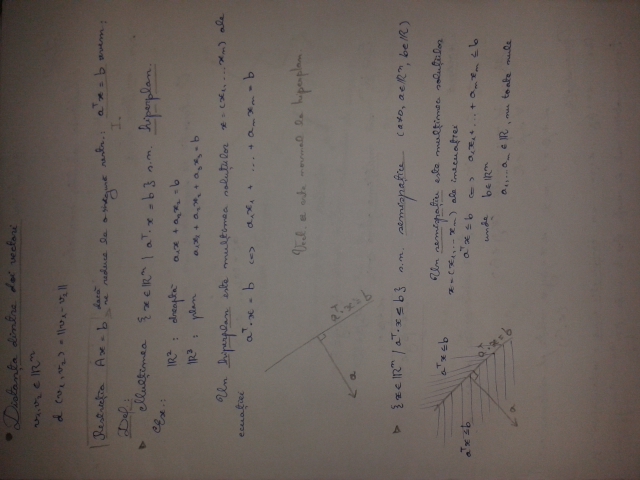 • Distanța dintre doi vectori
v1, v2 ∈ ℝⁿ
d (v1, v2) = ||v1 - v2||
Restricția Ax = b dacă se reduce la o singură restr.: aᵀx = b avem:
I.
Def.:
▷ Mulțimea {x ∈ ℝⁿ | aᵀ·x = b} s.n. hiperplan.
Ex.:
ℝ² : dreaptă a1x1 + a2x2 = b
ℝ³ : plan a1x1 + a2x2 + a3x3 = b
Un hiperplan este mulțimea soluțiilor x = (x1, ... xn) ale
ecuației aᵀ·x = b <=> a1x1 + ... + anxn = b
Vect. a este normal la hiperplan.
a
aᵀ·x = b
▷ {x ∈ ℝⁿ / aᵀ·x ≤ b} s.n. semispațiu (a≠0, a∈ℝⁿ, b∈ℝ)
aᵀx ≤ b
aᵀx ≤ b
aᵀ·x = b
a
Un semispațiu este mulțimea soluțiilor
x = (x1, ... xn) ale inecuației
aᵀx ≤ b <=> a1x1 + ... + anxn ≤ b
unde b ∈ ℝⁿ
a1, ... an ∈ ℝ, nu toate nule